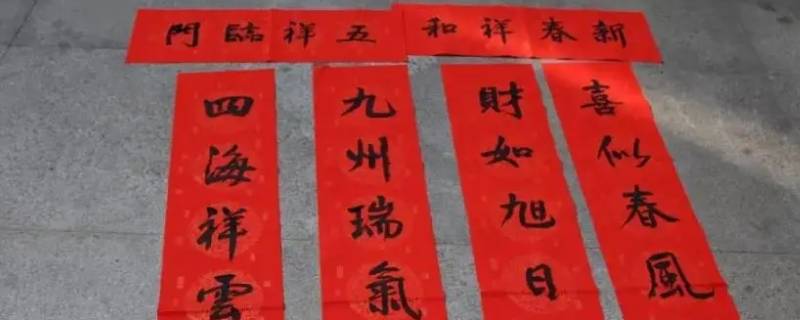 新春祥和
五祥臨門
喜似春風
財如旭日
九州瑞氣
四海祥雲